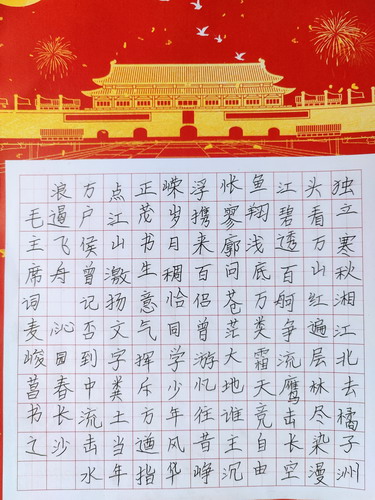 独立寒秋湘江北去橘子洲
头看万山红遍层林尽染漫
江碧透百舸争流鹰击长空
鱼翔浅底万类霜天竞自由
怅寥廓问苍茫大地谁主沉
浮携来百侣曾游忆往昔峥
嵘岁月稠恰同学少年风华
正茂书生意气挥斥方遒指
点江山激扬文字粪土当年
万户侯曾记否到中流击水
浪遏飞舟 沁园春长沙
毛主席词 麦峻菖书之